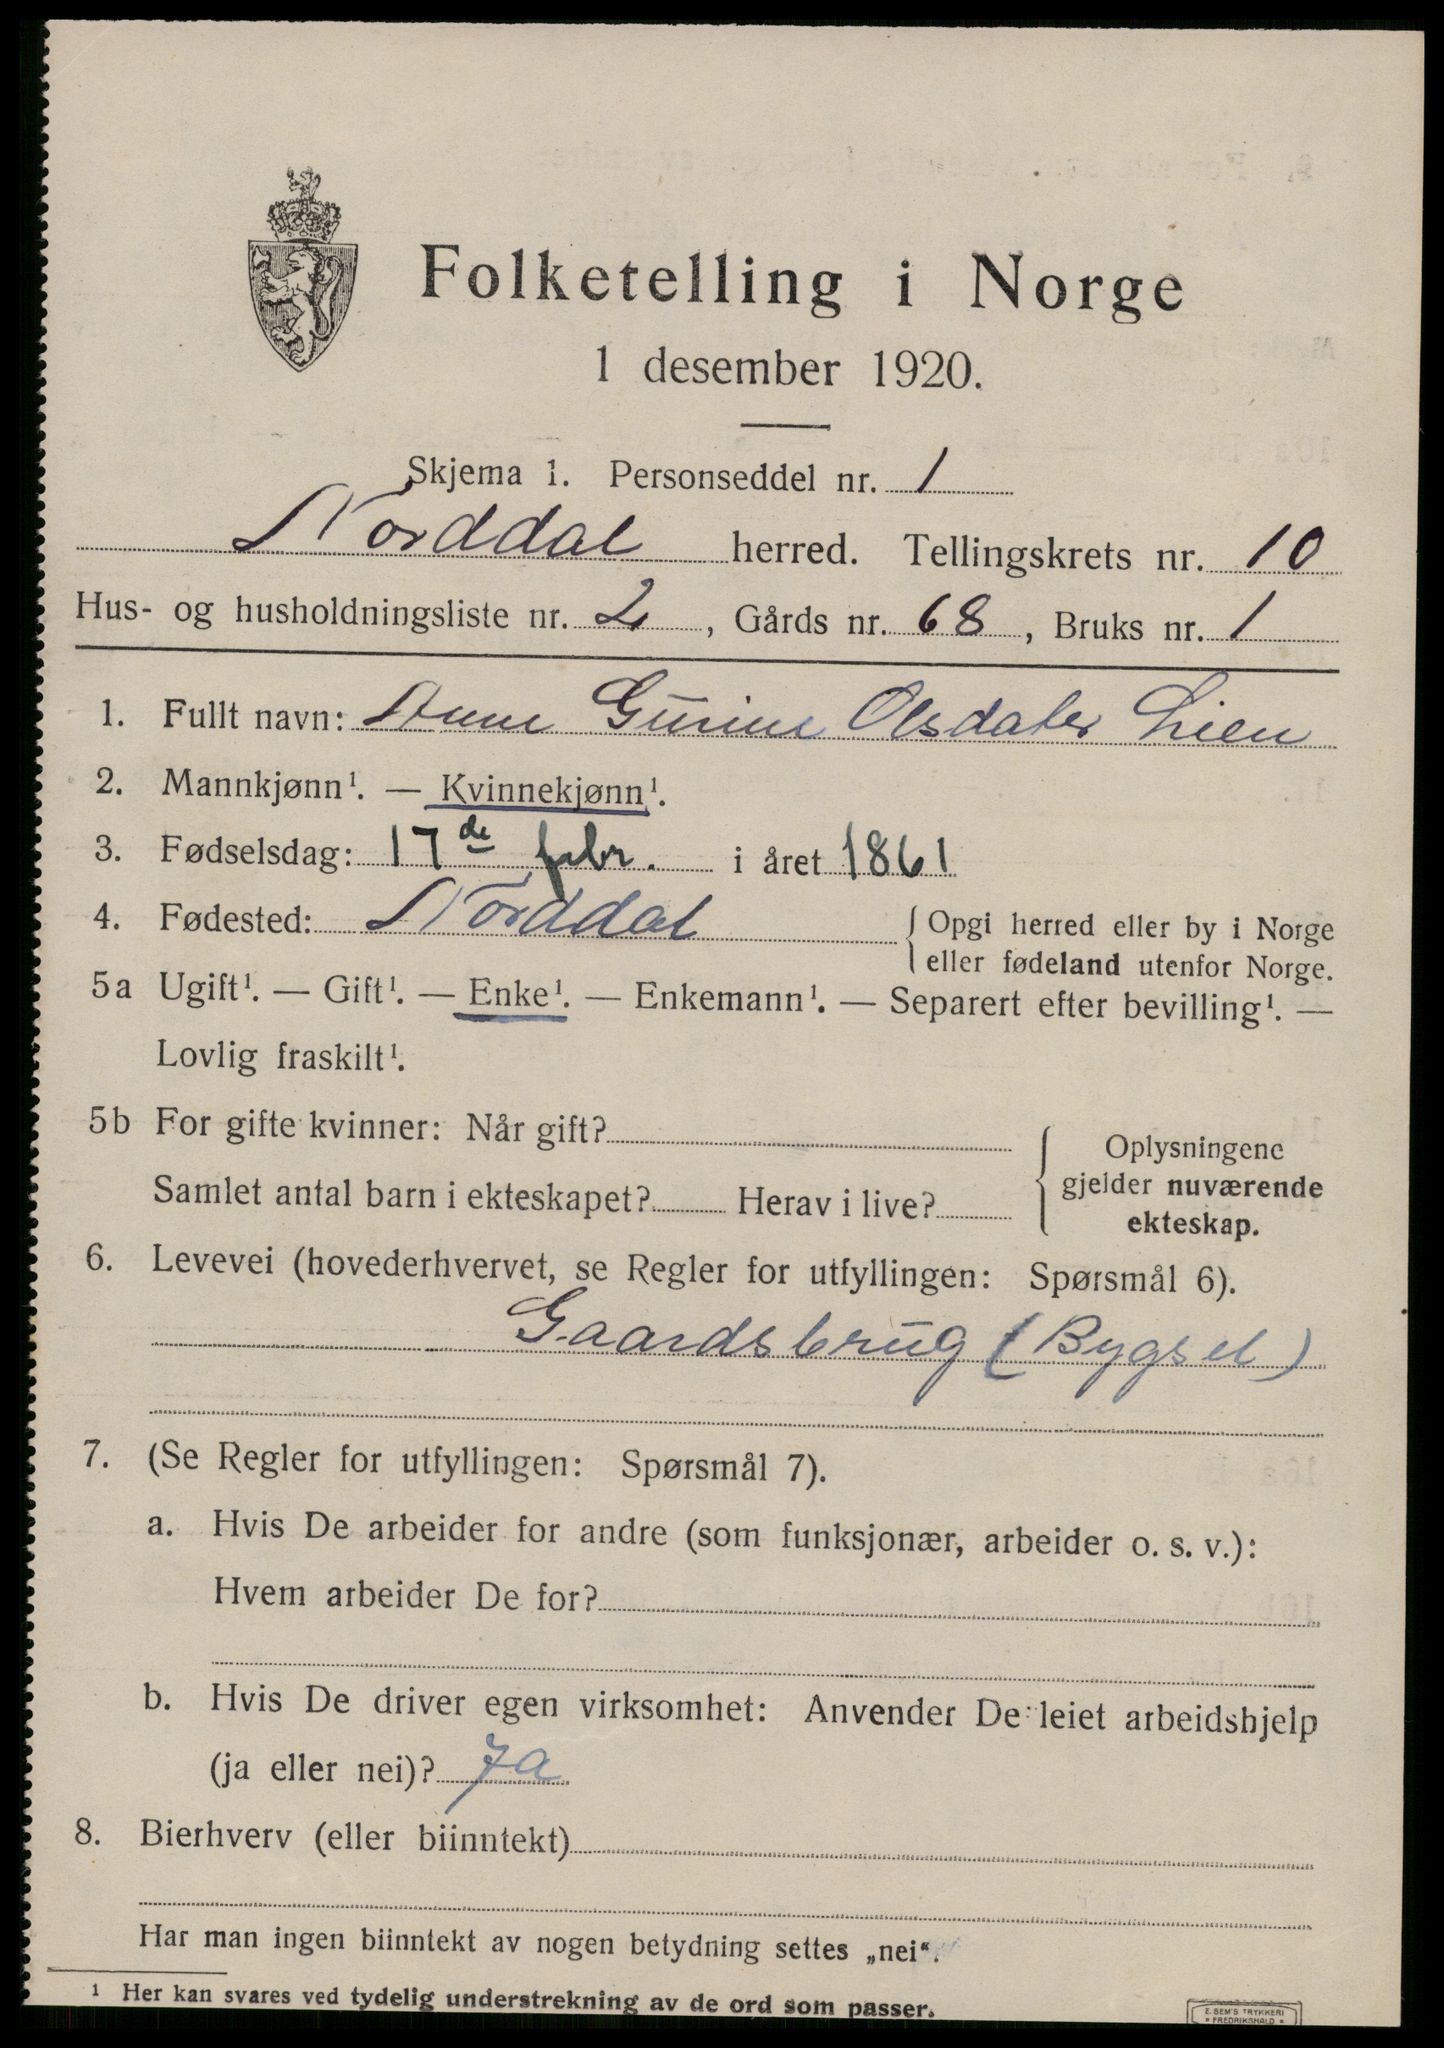 Folketelling i Norge
1 desember 1920.
Skjema 1. Personseddel nr. 1
Norddal herred. Tellingskrets nr. 10
Hus- og husholdningsliste nr. 2, Gårds nr. 68, Bruks nr. 1
1. Fullt navn: Anne Gurine Olsdater Lien
2. Mannkjønn¹. — Kvinnekjønn¹.
3. Fødselsdag: 17de febr. i året 1861
4. Fødested: Norddal { Opgi herred eller by i Norge
eller fødeland utenfor Norge.
5a Ugift¹. — Gift¹. — Enke¹. — Enkemann¹. — Separert efter bevilling¹. —
Lovlig fraskilt¹.
5b For gifte kvinner: Når gift?
Samlet antal barn i ekteskapet? Herav i live?
{ Oplysningene
gjelder nuværende
ekteskap.
6. Levevei (hovederhvervet, se Regler for utfyllingen: Spørsmål 6).
Gaardsbrug (Bygsel)
7. (Se Regler for utfyllingen: Spørsmål 7).
a. Hvis De arbeider for andre (som funksjonær, arbeider o. s. v.):
Hvem arbeider De for?
b. Hvis De driver egen virksomhet: Anvender De leiet arbeidshjelp
(ja eller nei)? Ja
8. Bierhverv (eller biinntekt)
Har man ingen biinntekt av nogen betydning settes „nei“.
¹ Her kan svares ved tydelig understrekning av de ord som passer.
E. SEM'S TRYKKERI
• FREDRIKSHALD •